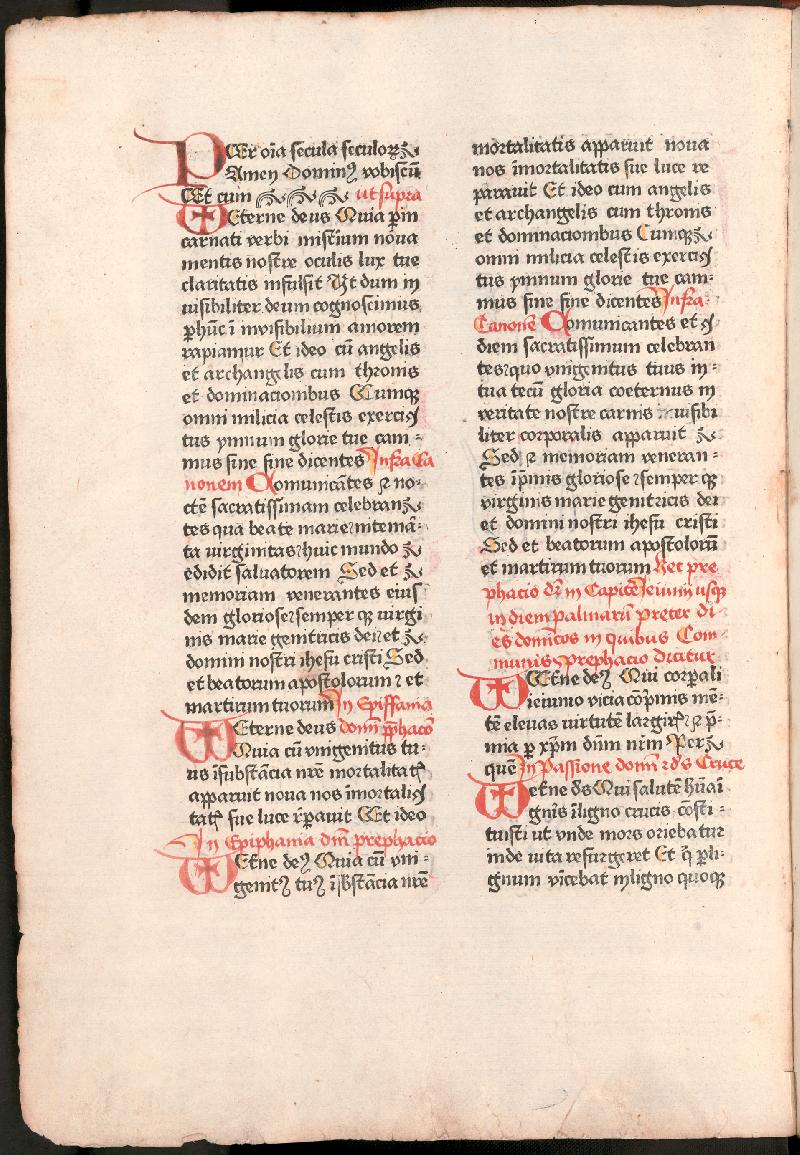 PEr oīa secula seculoꝝ
Amen Dominꝰ vobiscū
Et cum ut supra
Eterne deus Quia ꝑ in
carnati verbi misteriū noua
mentis nostre oculis lux tue
claritatis infulsit Ut dum in
uisibiliter deum cognoscimus
ꝑ hūc ī inuisibilium amorem
rapiamur Et ideo cū angelis
et archangelis cum thronis
et dominacionibus Cumqꝫ
omni milicia celestis exerciꝯ
tus ymnum glorie tue cam-
mus sine fine dicentes Infra Ca
nonem Comunicātes ⁊ no-
ctē sacratissimam celebran
tes qua beate marie intemā-
ta uirginitas huic mundo
edidit saluatorem Sed et
memoriam venerantes eius
dem gloriose semper qꝫ uirgi
nis marie genitricis dei et
domini nostri ihesu cristi Sed
et beatorum apostolorum ⁊ et
martirum tuorum In Epiffania
Eterne deus domī p̄phacō
Quia cū vnigenitus tu-
us ī substācia nr̄e mortalitatꝭ
apparuit noua nos īmortaliꝯ
tatꝭ sue luce rꝑauit Et ideo
In Epiphania dnī prephacio
Et̄ne deꝰ Quia cū vni-
genitꝰ tuꝰ ī sbstācia nr̄e
mortalitatis apparuit noua
nos īmortalitatis sue luce re
parauit Et ideo cum angelis
et archangelis cum thronis
et dominacionibus Cumqꝫ
omni milicia celestis exerciꝯ
tus ymnum glorie tue cam-
mus sine fine dicentes Infra
Canonē Comunicantes et
diem sacratissimum celebran
tes quo vnigenitus tuus in-
tua tecū gloria coeternus in
veritate nostre carnis uisibi
liter corporalis apparuit
Sed ⁊ memoriam veneran-
tes īp̄mis gloriose semper qꝫ
virginis marie genitricis dei
et domini nostri ihesu cristi
Sed et beatorum apostolorū
et martirum tuorum Hec pre
phacio dr̄ in Capite Ieiunii usqꝫ
in diem palmarū preter di-
es domīcos in quibus Com
munis prephacio dicitur
Et̄ne deꝰ Qui corꝑali
ieiunio vicia cōp̄mis mē-
tē eleuas uirtutē largirꝭ ⁊ p̄-
mia ꝑ xp̄m dn̄m nr̄m Per
quē In Passione domī ⁊ d's Cruce
Et̄ne d's Qui salutē hūaī
gn̄is ī ligno crucis cōsti-
tuisti ut vnde mors oriebatur
inde uita resurgeret Et q̄ ꝑ li-
gnum vīcebat in ligno quoqꝫ